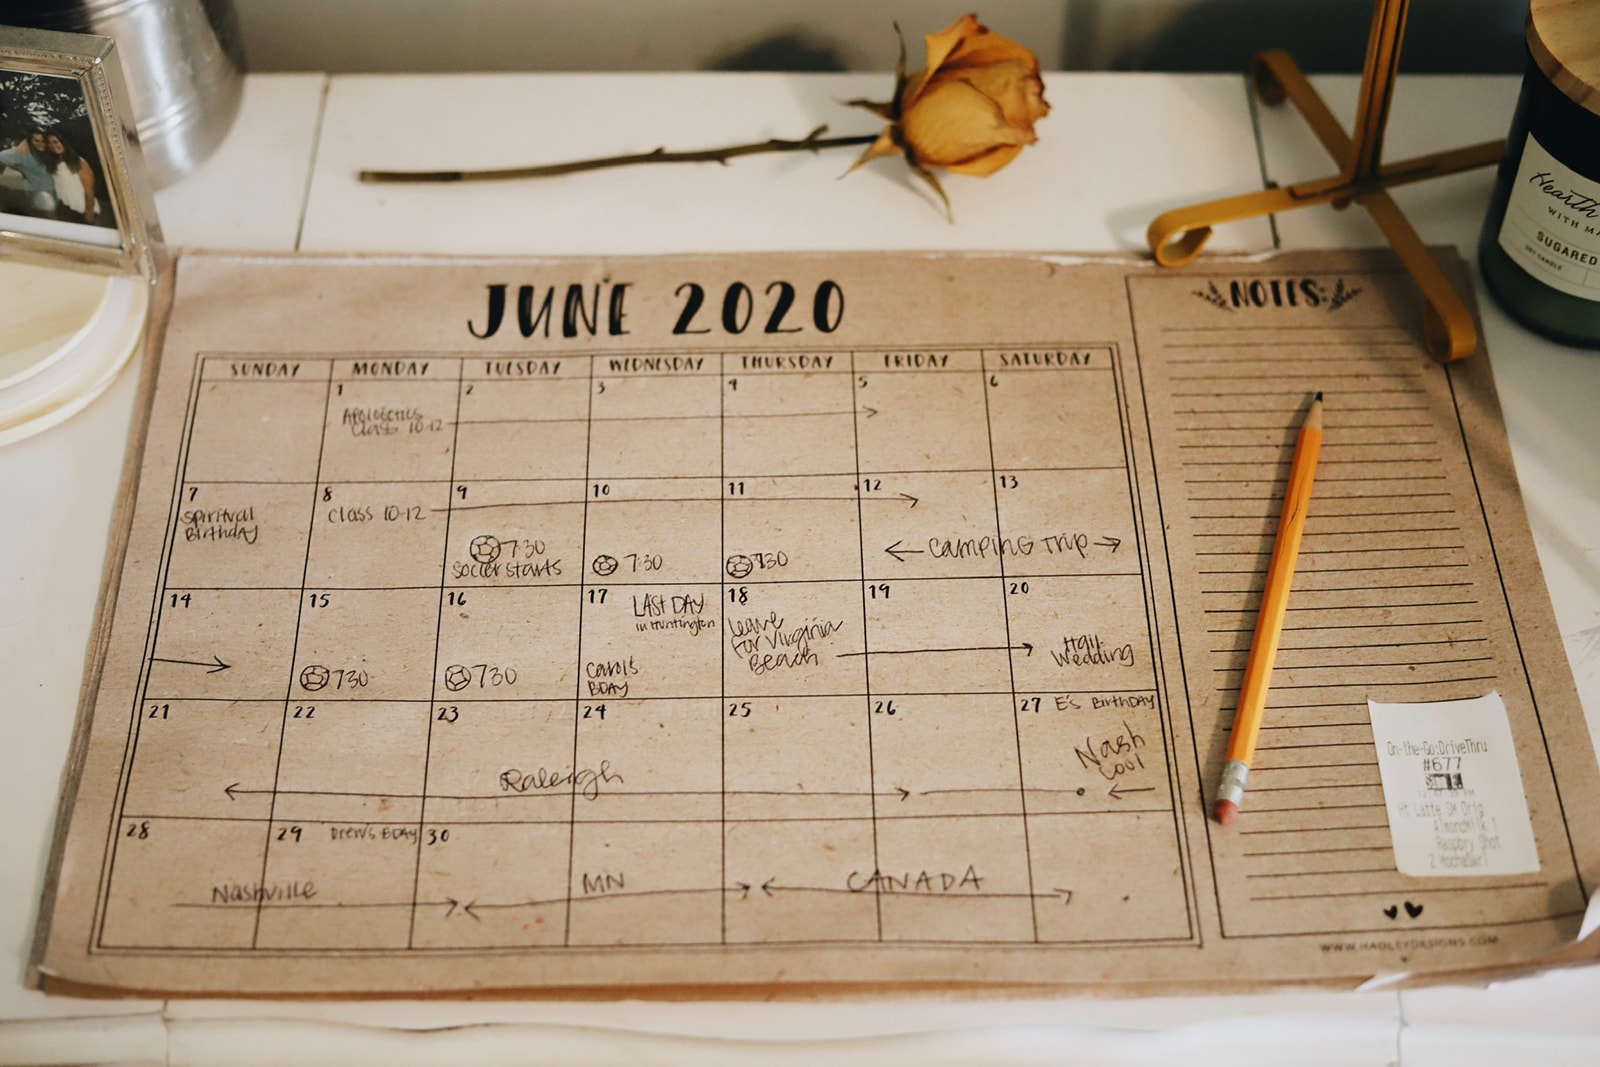 JUNE 2020
SUNDAY MONDAY TUESDAY WEDNESDAY THURSDAY FRIDAY SATURDAY
1 2 3 4 5 6
APOLOGETICS
Class 10-12
7 8 9 10 11 12 13
Spiritual
Birthday
Class 10-12
7:30
Soccer starts
7:30
7:30
Camping Trip
14 15 16 17 18 19 20
LAST DAY
in Huntington
Leave
for Virginia
Beach
Hall
Wedding
730
730
Carol's
BDAY
21 22 23 24 25 26 27
E's BirthDAY
Nash
Raleigh
28 29 30
Drew's BDAY
Nashville
MN
CANADA
NOTES:
On-the-Go:DriveThru
#677
Ht Latte SM Orig
AlmondMilk 1
Raspbry Shot
2 MochaSwrl
WWW.HADLEYDESIGNS.COM
Hearth
WITH
SUGARED
SOY CANDLE